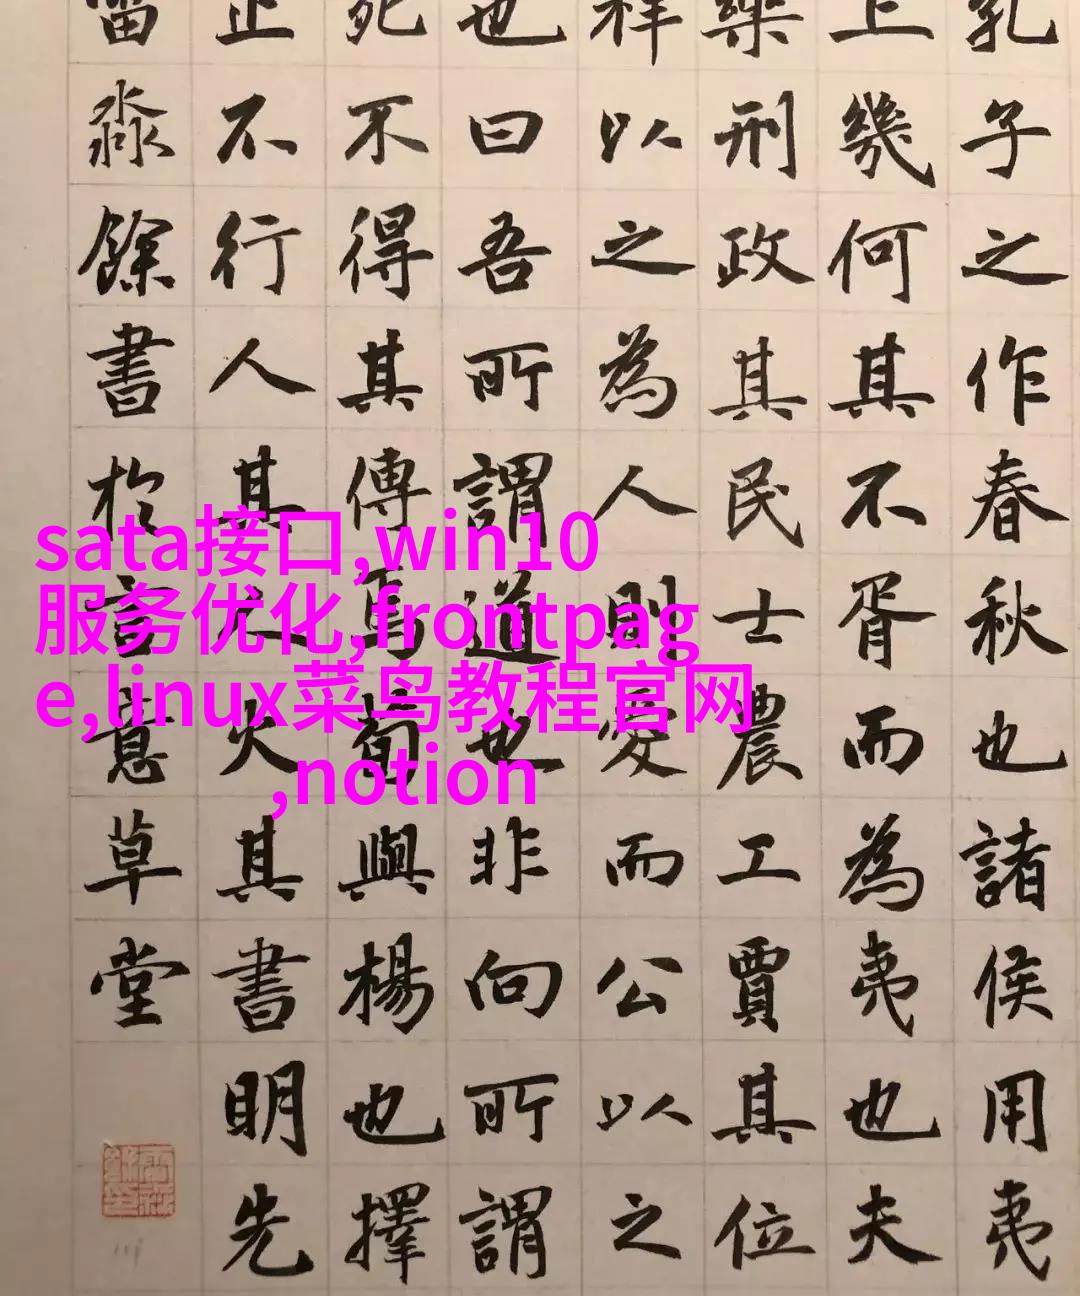 孔子之作春秋也諸侯用夷
上幾何其不胥而為夷也夫
樂刑政其民士農工賈其位
祥以之為人則愛而公以之
也曰吾所謂道也非向所謂
死不得其傳焉荀與楊也擇
止不行人其人火其書明先
淼餘書於言意草堂
sata接口,win10
服务优化,frontpag
e,linux菜鸟教程官网
,notion